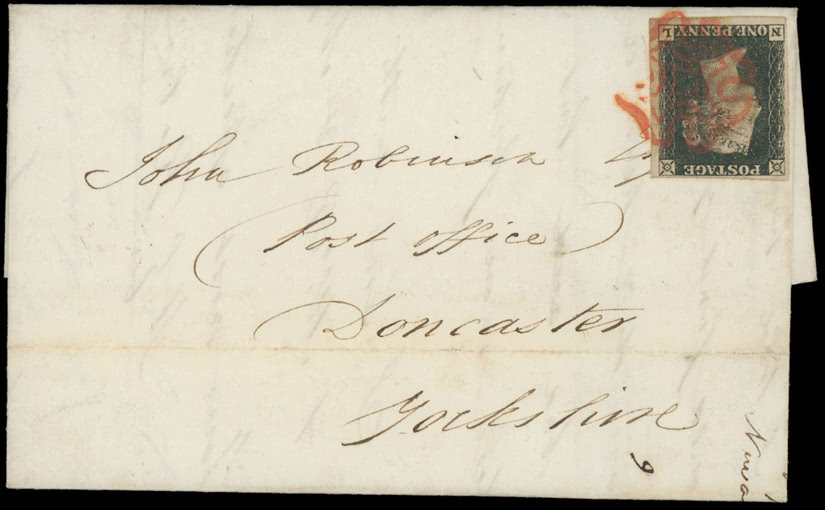 John Robinson Esq
(Post Office)
Doncaster
Yorkshire
9
POSTAGE
ONE PENNY
N L